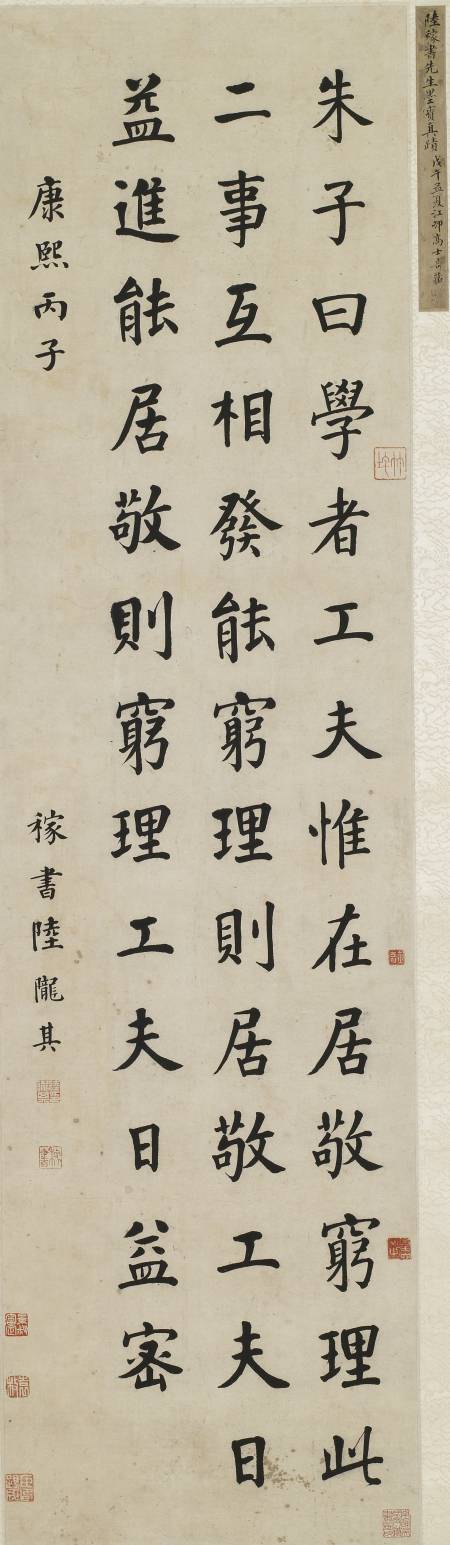 陸稼書先生墨寶真蹟 戊午孟夏江邨高士奇
朱子曰學者工夫惟在居敬窮理此
二事互相發能窮理則居敬工夫日
益進能居敬則窮理工夫日益密
康熙丙子
稼書陸隴其